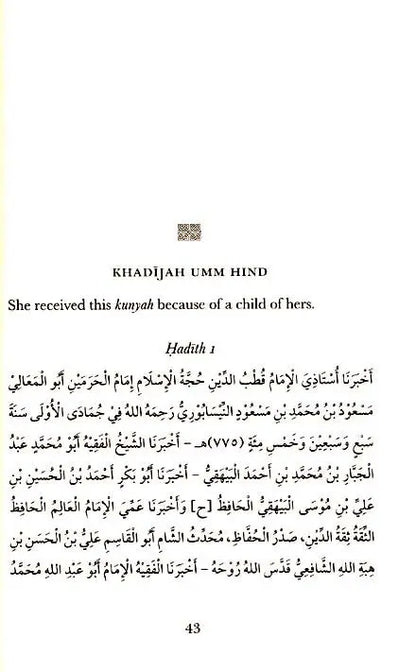 KHADĪJAH UMM HIND
She received this kunyah because of a child of hers.
Ḥadīth 1
أَخْبَرَنَا أُسْتَاذِيَ الْإِمَامُ قُطْبُ الدِّينِ حُجَّةُ الْإِسْلَامِ إِمَامُ الْحَرَمَيْنِ أَبُو الْمَعَالِيْ
مَسْعُودُ بْنُ مُحَمَّدِ بْنِ مَسْعُودٍ النَّيْسَابُورِيُّ رَحِمَهُ اللهُ فِيْ جُمَادَى الْأُوْلَى سَنَةَ
سَبْعٍ وَسَبْعِينَ وَخَمْسِ مِئَةٍ (٧٧٥)هـ – أَخْبَرَنَا الشَّيْخُ الْفَقِيْهُ أَبُو مُحَمَّدٍ عَبْدُ
الْجَبَّارِ بْنُ مُحَمَّدِ بْنِ أَحْمَدَ الْبَيْهَقِيُّ – أَخْبَرَنَا أَبُو بَكْرٍ أَحْمَدُ بْنُ الْحُسَيْنِ بْنِ
عَلِيِّ بْنِ مُوْسَى الْبَيْهَقِيُّ الْحَافِظُ [ح] وَأَخْبَرَنَا عَمِّيَ الْإِمَامُ الْعَالِمُ الْحَافِظُ
الثِّقَةُ ثِقَةُ الدِّيْنِ، صَدْرُ الْحُفَّاظِ، مُحَدِّثُ الشَّامِ أَبُو الْقَاسِمِ عَلِيُّ بْنُ الْحَسَنِ بْنِ
هِبَةِ اللهِ الشَّافِعِيُّ قَدَّسَ اللهُ رُوْحَهُ – أَخْبَرَنَا الْفَقِيْهُ الْإِمَامُ أَبُوْ عَبْدِ اللهِ مُحَمَّدُ
43